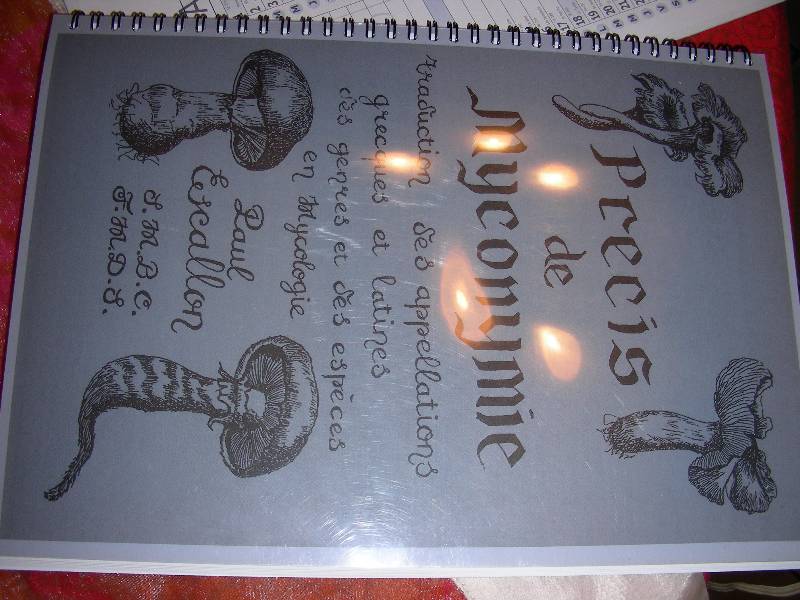 Precis
de
Myconymie
traduction des appellations
grecques et latines
des genres et des espèces
en Mycologie
Paul
Escallon
S.M.B.C.
F.M.D.S.